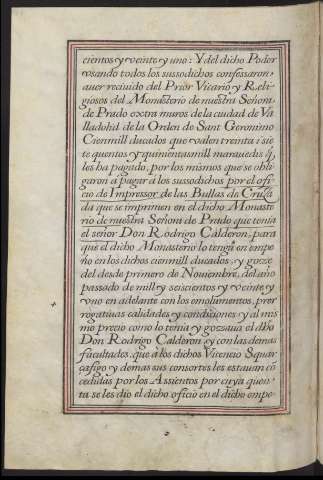 cientos y veinte y uno: Y del dicho Poder
vsando todos los sussodichos confessaron
auer reciuido del Prior Vicario y Reli-
giosos del Monasterio de nuestra Señora
de Prado extra muros de la ciudad de Va
lladolid de la Orden de Sant Geronimo
Cienmill ducados que valen treinta i sie
te quentos y quinientasmill marauedis q̃
les ha pagado, por los mismos que se obli
garon a pagar a los sussodichos por el offi
cio de Impressor de las Bullas de Cruza
da que se imprimen en el dicho Monaste
rio de nuestra Señora de Prado que tenia
el señor Don Rodrigo Calderon, para
que el dicho Monasterio lo tenga en empe
ño en los dichos cienmill ducados, y goze
del desde primero de Nouiembre, del año
passado de mill y seiscientos y veinte, y
vno en adelante con los emolumentos, prer
rogatiuas calidades y condiciones y al mis
mo precio como lo tenia y gozaua el dho
Don Rodrigo Calderon, y con las demas
facultades, que a los dichos Vicencio Squar
çafigo y demas sus consortes les estauan cõ
cedidas por los Assientos por cuya quen
ta se les dio el dicho oficio en el dicho empe-